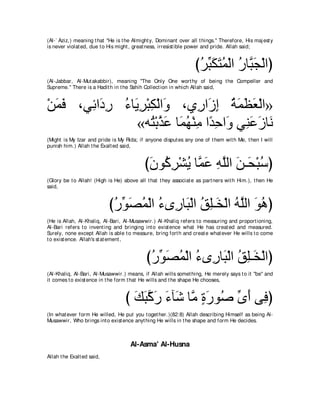 (Al-`Aziz,) meaning that "He is the Almighty, Dominant over all things.'' Therefore, His majesty
is never violated, due to His might, greatness, irresistible power and pride. Allah said;
(الْجَبَّارُ الْمُتَكَبِّرُ)
(Al-Jabbar, Al-Mutakabbir), meaning "The Only One worthy of being the Compeller and
Supreme.'' There is a Hadith in the Sahih Collection in which Allah said,
«الْعَظَمَةُ إِزَارِي، وَالْكِبْرِيَاءُ رِدَائِي، فَمَنْ
نَازَعَنِي وَاحِدًا مِنْهُمَا عَذَّبْتُه»
(Might is My Izar and pride is My Rida; if anyone disputes any one of them with Me, then I will
punish him.) Allah the Exalted said,
(سُبْحَـنَ اللَّهِ عَمَّا يُشْرِكُونَ)
(Glory be to Allah! (High is He) above all that they associate as partners with Him.), then He
said,
(هُوَ اللَّهُ الْخَـلِقُ الْبَارِىءُ الْمُصَوِّرُ)
(He is Allah, Al-Khaliq, Al-Bari, Al-Musawwir.) Al-Khaliq refers to measuring and proportioning,
Al-Bari refers to inventing and bringing into existence what He has created and measured.
Surely, none except Allah is able to measure, bring forth and create whatever He wills to come
to existence. Allah's statement,
(الْخَـلِقُ الْبَارِىءُ الْمُصَوِّرُ)
(Al-Khaliq, Al-Bari, Al-Musawwir.) means, if Allah wills something, He merely says to it "be" and
it comes to existence in the form that He wills and the shape He chooses,
(فِى أَىِّ صُورَةٍ مَّا شَآءَ رَكَّبَكَ )
(In whatever form He willed, He put you together.)(82:8) Allah describing Himself as being Al-
Musawwir, Who brings into existence anything He wills in the shape and form He decides.
Al-Asma' Al-Husna
Allah the Exalted said,